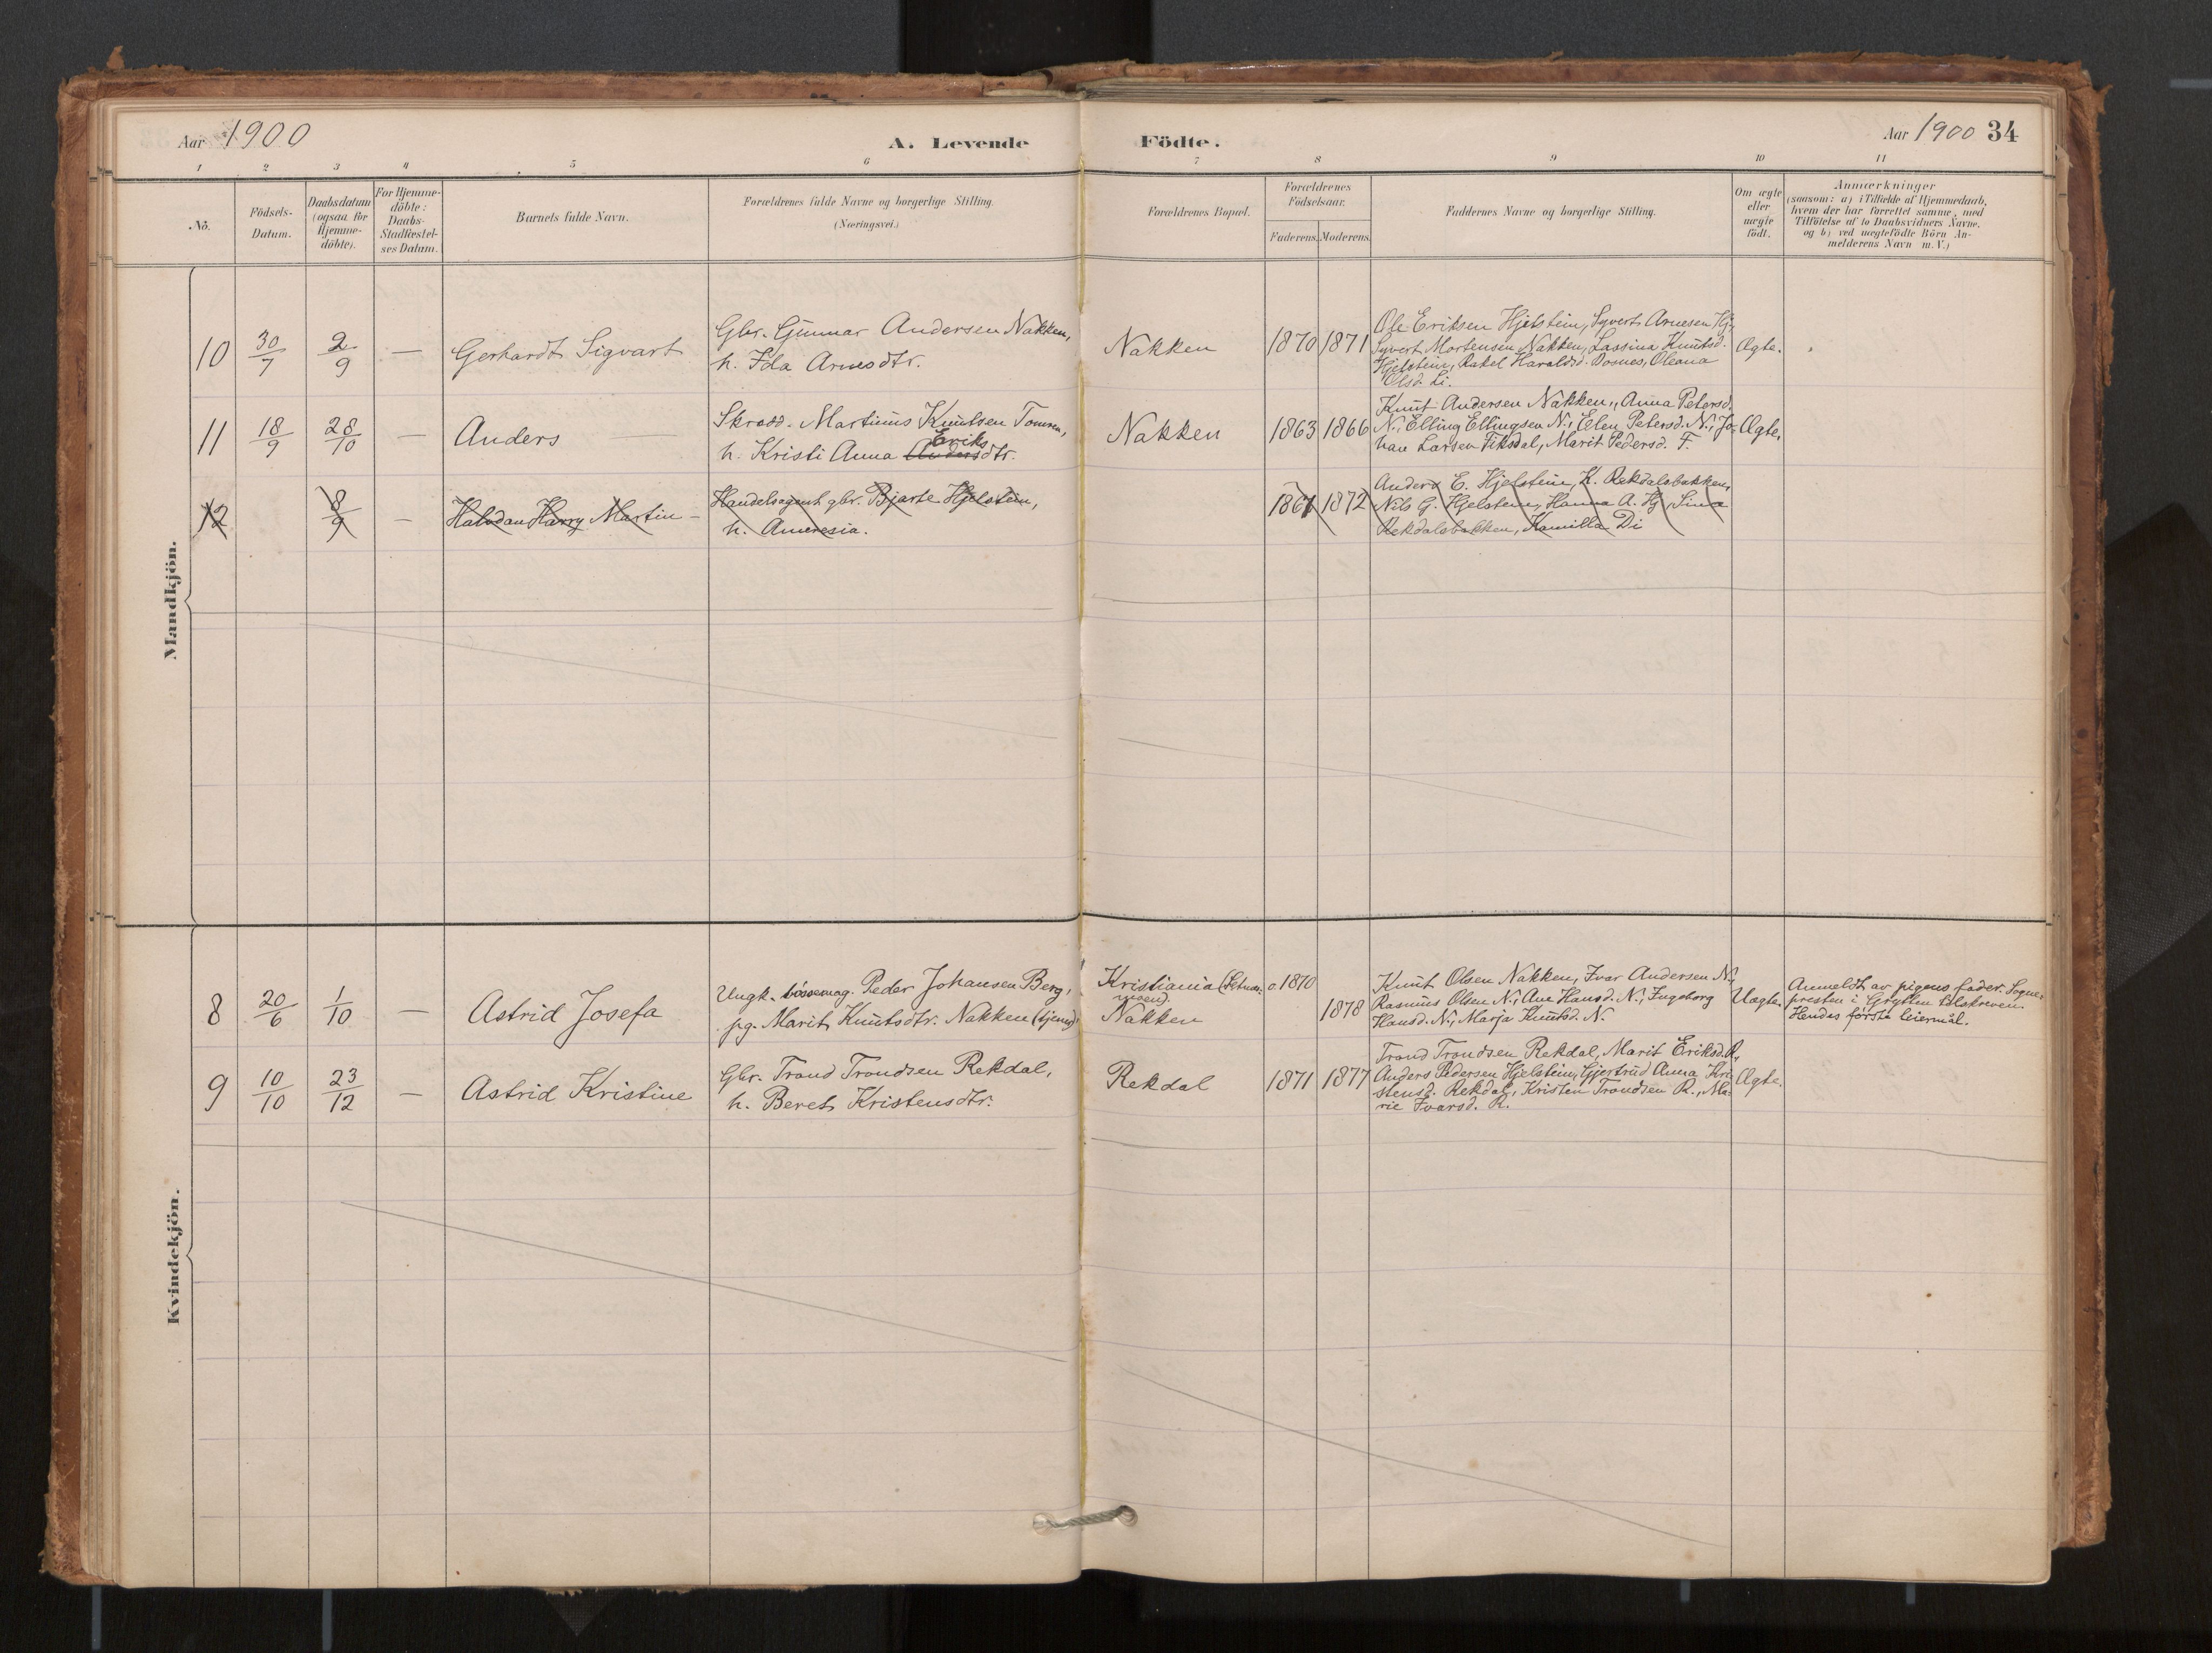 Aar 1900
A. Levende Födte.
Aar 1900 34
1 2 3 4 5 6 7 8 9 10 11
No.
Födsels-
Datum.
Daabsdatum
(ogsaa for
Hjemme-
döbte).
For Hjemme-
döbte:
Daabs-
Stadfæstel-
ses Datum.
Barnets fulde Navn.
Forældrenes fulde Navne og borgerlige Stilling.
(Næringsvei.)
Forældrenes Bopæl.
Forældrenes
Födselsaar.
Faderens. Moderens.
Faddernes Navne og borgerlige Stilling.
Om ægte
eller
uægte
födt.
Anmærkninger
(saasom: a) i Tilfælde af Hjemmedaab,
hvem der har forrettet samme, med
Tilföielse af to Daabsvidners Navne,
og b) ved uægtefödte Börn An-
melderens Navn m. V.)
Mandkjön.
10 30/7 2/9 — Gerhardt Sigvart
Gbr. Gunnar Andersen Nakken,
h. Ida Arnesdtr.
Nakken 1870 1871
Ole Eriksen Hjelstein, Syvert Arnesen Hj.,
Syvert Mortensen Nakken, Lassina Knutsd.
Hjelstein, Rakel Haraldsd. Bosnes, Oleana
Olsd. Li.
Ægte.
11 18/9 28/10 — Anders
Skrædd. Martinus Knutsen Tomren,
Eriks
h. Kristi Anna Andersdtr.
Nakken 1863 1866
Knut Andersen Nakken, Anna Petersd.
N., Elling Ellingsen N., Elen Petersd. N., Jo-
han Larsen Fiksdal, Marit Pedersd. F.
Ægte.
12 8/9 — Halvdan Harry Martin —
Handelsagent gbr. Bjarte Hjelstein,
h. Ameresia.
1861 1872
Anders E. Hjelstein, K. Rekdalsbakken,
Nils G. Hjelstein, Hanna A. Hj. Sina
Rekdalsbakken, Kamilla Di
Kvindekjön.
8 20/6 1/10 — Astrid Josefa
Ungk. bössemag. Peder Johansen Berg,
pg. Marit Knutsdtr. Nakken (tjened)
Kristiania
Nakken
c. 1870
1878
Knut Olsen Nakken, Ivar Andersen N.,
Rasmus Olsen N., Ane Hansd. N., Ingeborg
Hansd. N., Marja Knutsd. N.
Uægte.
Anmeldt av pigens fader. Sogne-
presten i Grytten tilskreven.
Hendes første leiermål.
9 10/10 23/12 — Astrid Kristine
Gbr. Trond Trondsen Rekdal,
h. Beret Kristensdtr.
Rekdal 1871 1877
Trond Trondsen Rekdal, Marit Eriksd. R.,
Anders Pedersen Hjelstein, Gjertrud Anna Kri-
stensd. Rekdal, Kristen Trondsen R., Ma-
rie Ivarsd. R.
Ægte.